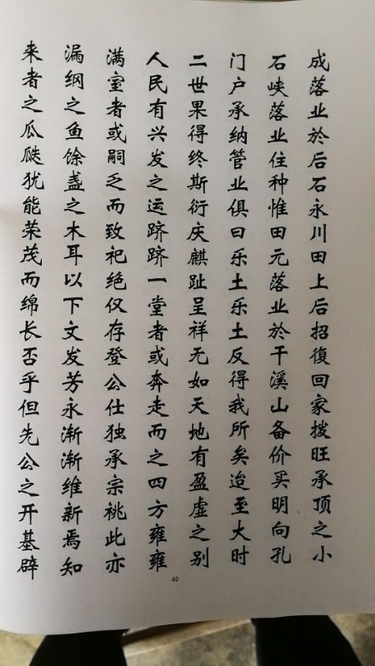 成落业於后石永川田上后招復回家拨旺承顶之小
石峡落业住种惟田元落业於干溪山备价买明向孔
门户承纳管业俱曰乐土乐土反得我所矣迨至大时
二世果得终斯衍庆麒趾呈祥无如天地有盈虚之别
人民有兴发之运跻跻一堂者或奔走而之四方雍雍
满室者或嗣乏而致祀绝仅存登公仕独承宗祧此亦
漏纲之鱼馀盏之木耳以下文发芳永渐渐维新焉知
来者之瓜瓞犹能荣茂而绵长否乎但先公之开基辟
40